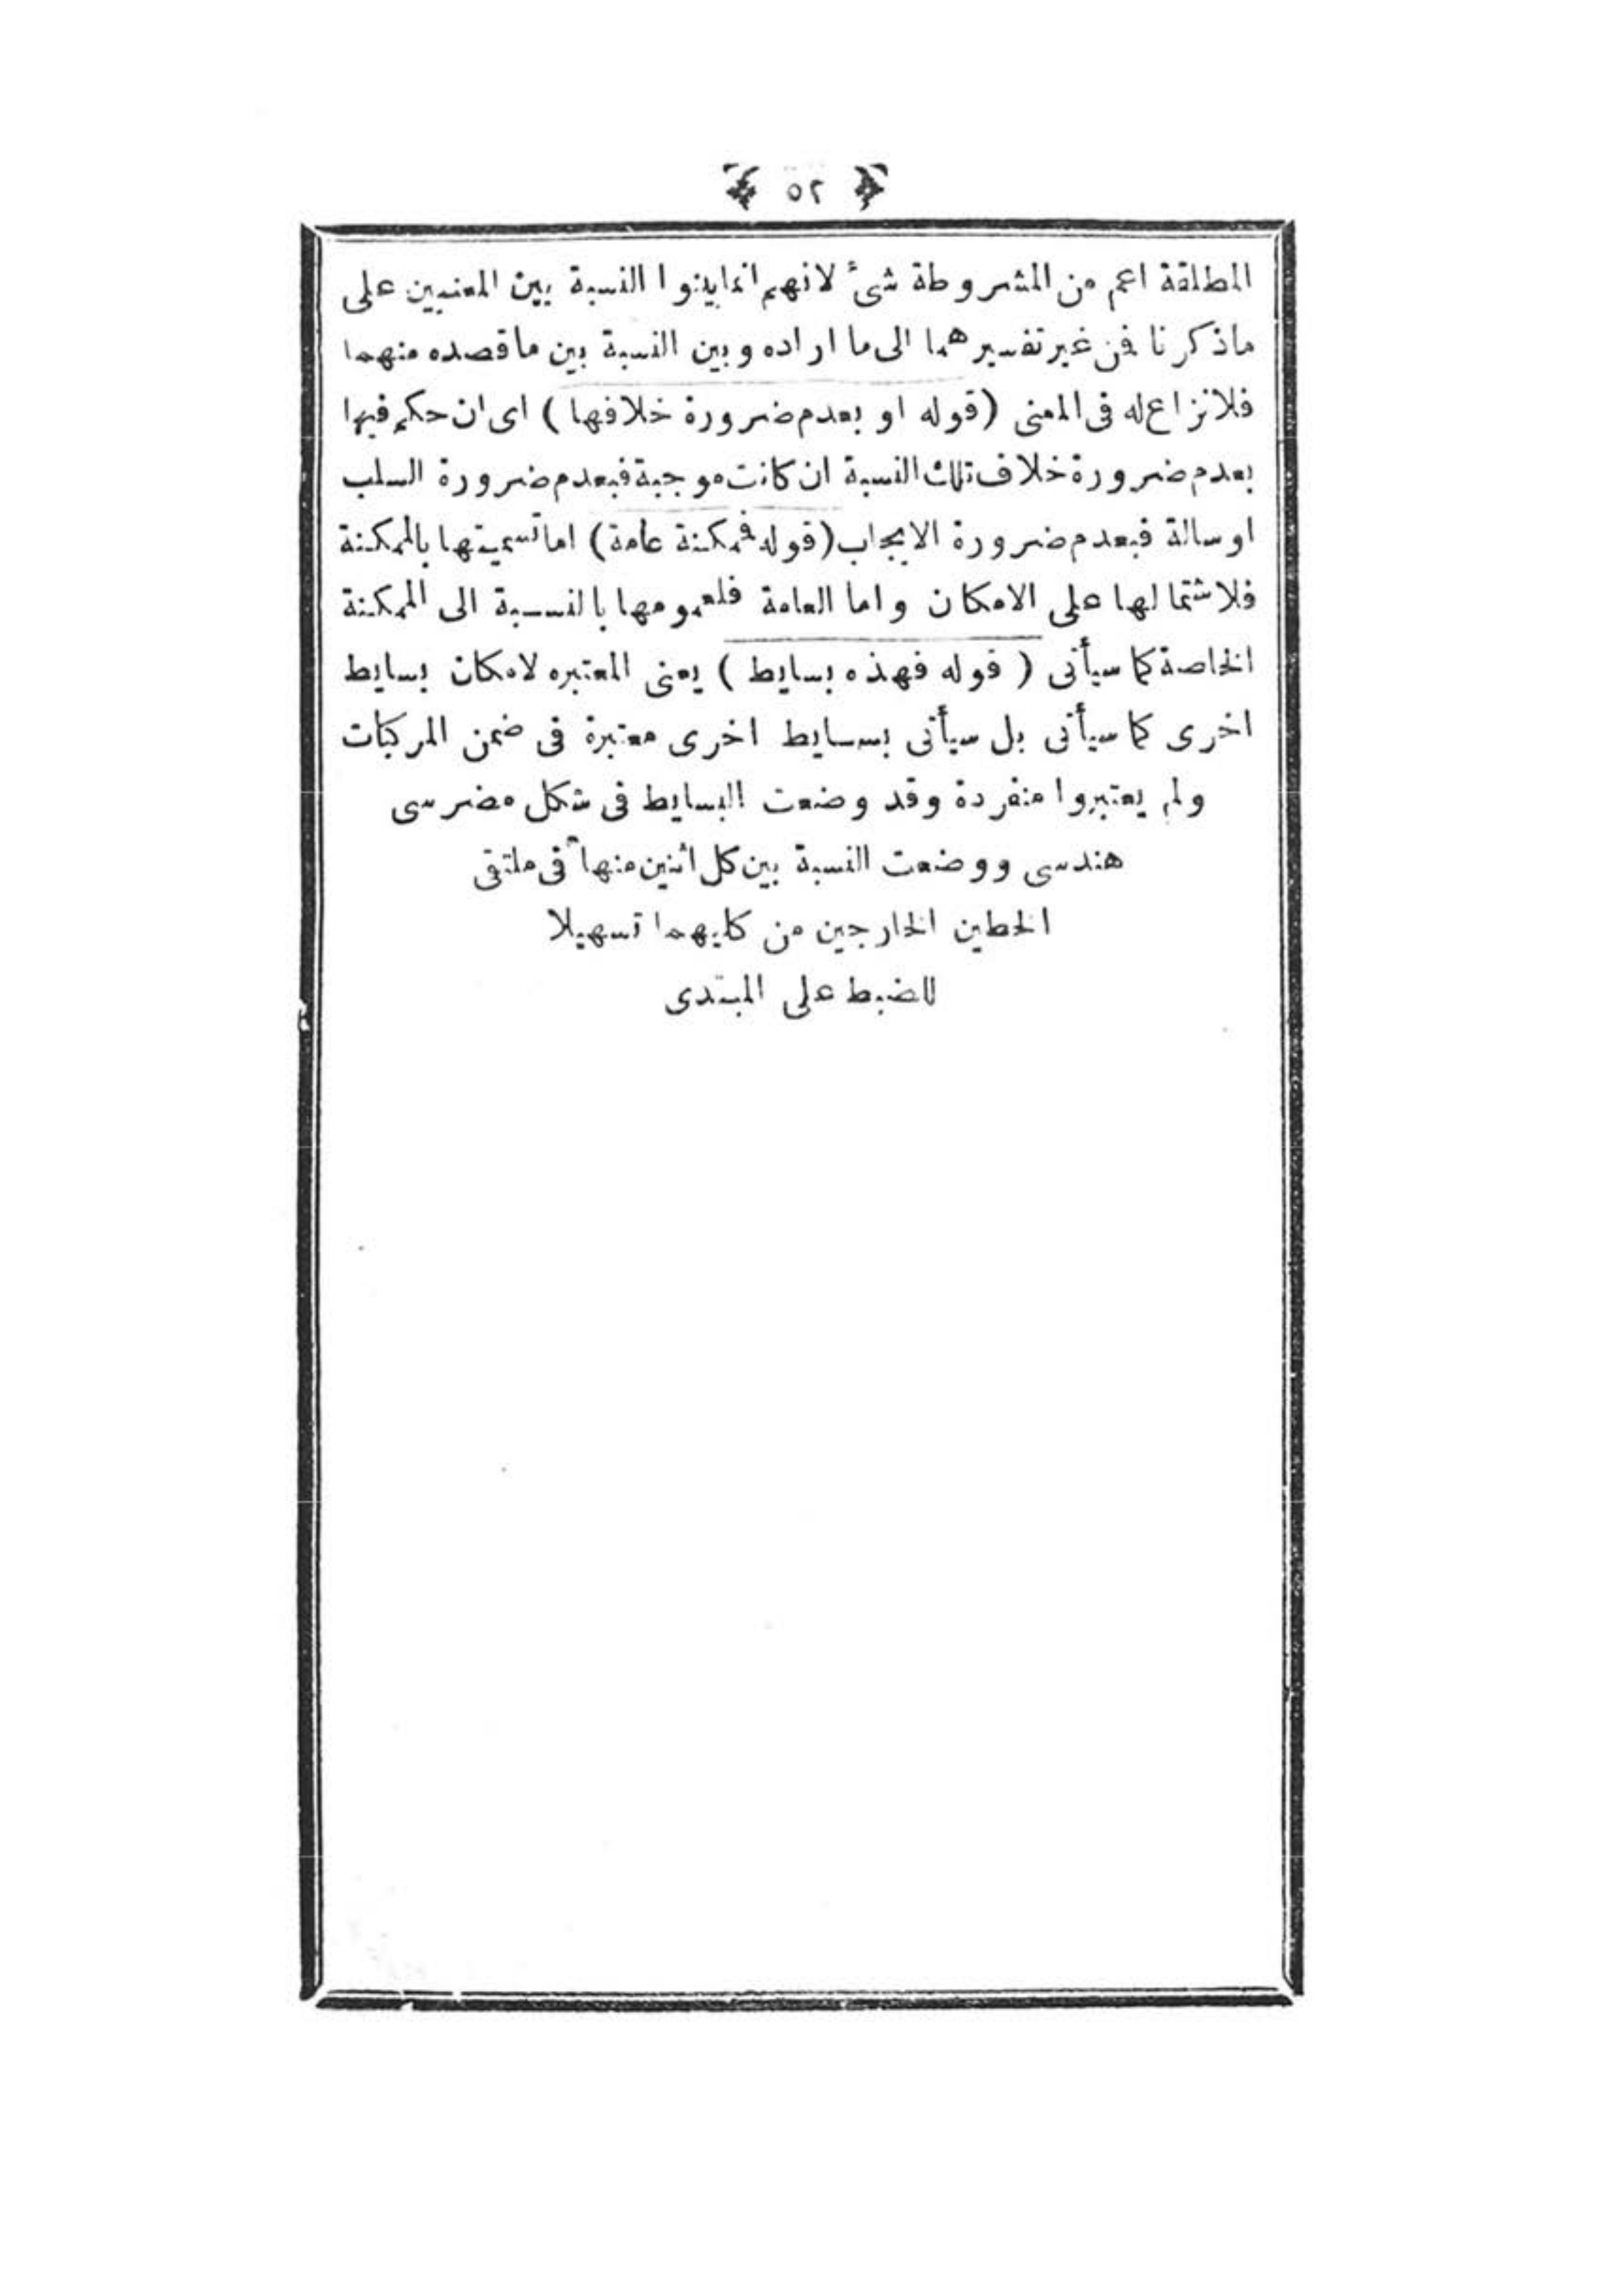 ﴿ ٥٢ ﴾
المطلقة اعم من المشروطة شئ لانهم انما بينوا النسبة بين المعنيين على
ماذكرنا فمن غير تفسيرهما الى ما اراده وبين النسبة بين ما قصده منهما
فلا نزاع له فى المعنى (قوله او بعدم ضرورة خلافها) اى ان حكم فيها
بعدم ضرورة خلاف تلك النسبة ان كانت موجبة فبعدم ضرورة السلب
او سالة فبعدم ضرورة الايجاب (قوله فممكنة عامة) اما تسميتها بالممكنة
فلاشتمالها على الامكان واما العامة فلعمومها بالنسبة الى الممكنة
الخاصة كما سيأتى (قوله فهذه بسايط) يعنى المعتبره لامكان بسايط
اخرى كما سيأتى بل سيأتى بسايط اخرى معتبرة فى ضمن المركبات
ولم يعتبروا منفردة وقد وضعت البسايط فى شكل مضرسى
هندسى ووضعت النسبة بين كل اثنين منها فى ملتقى
الخطين الخارجين من كليهما تسهيلا
للضبط على المبتدى